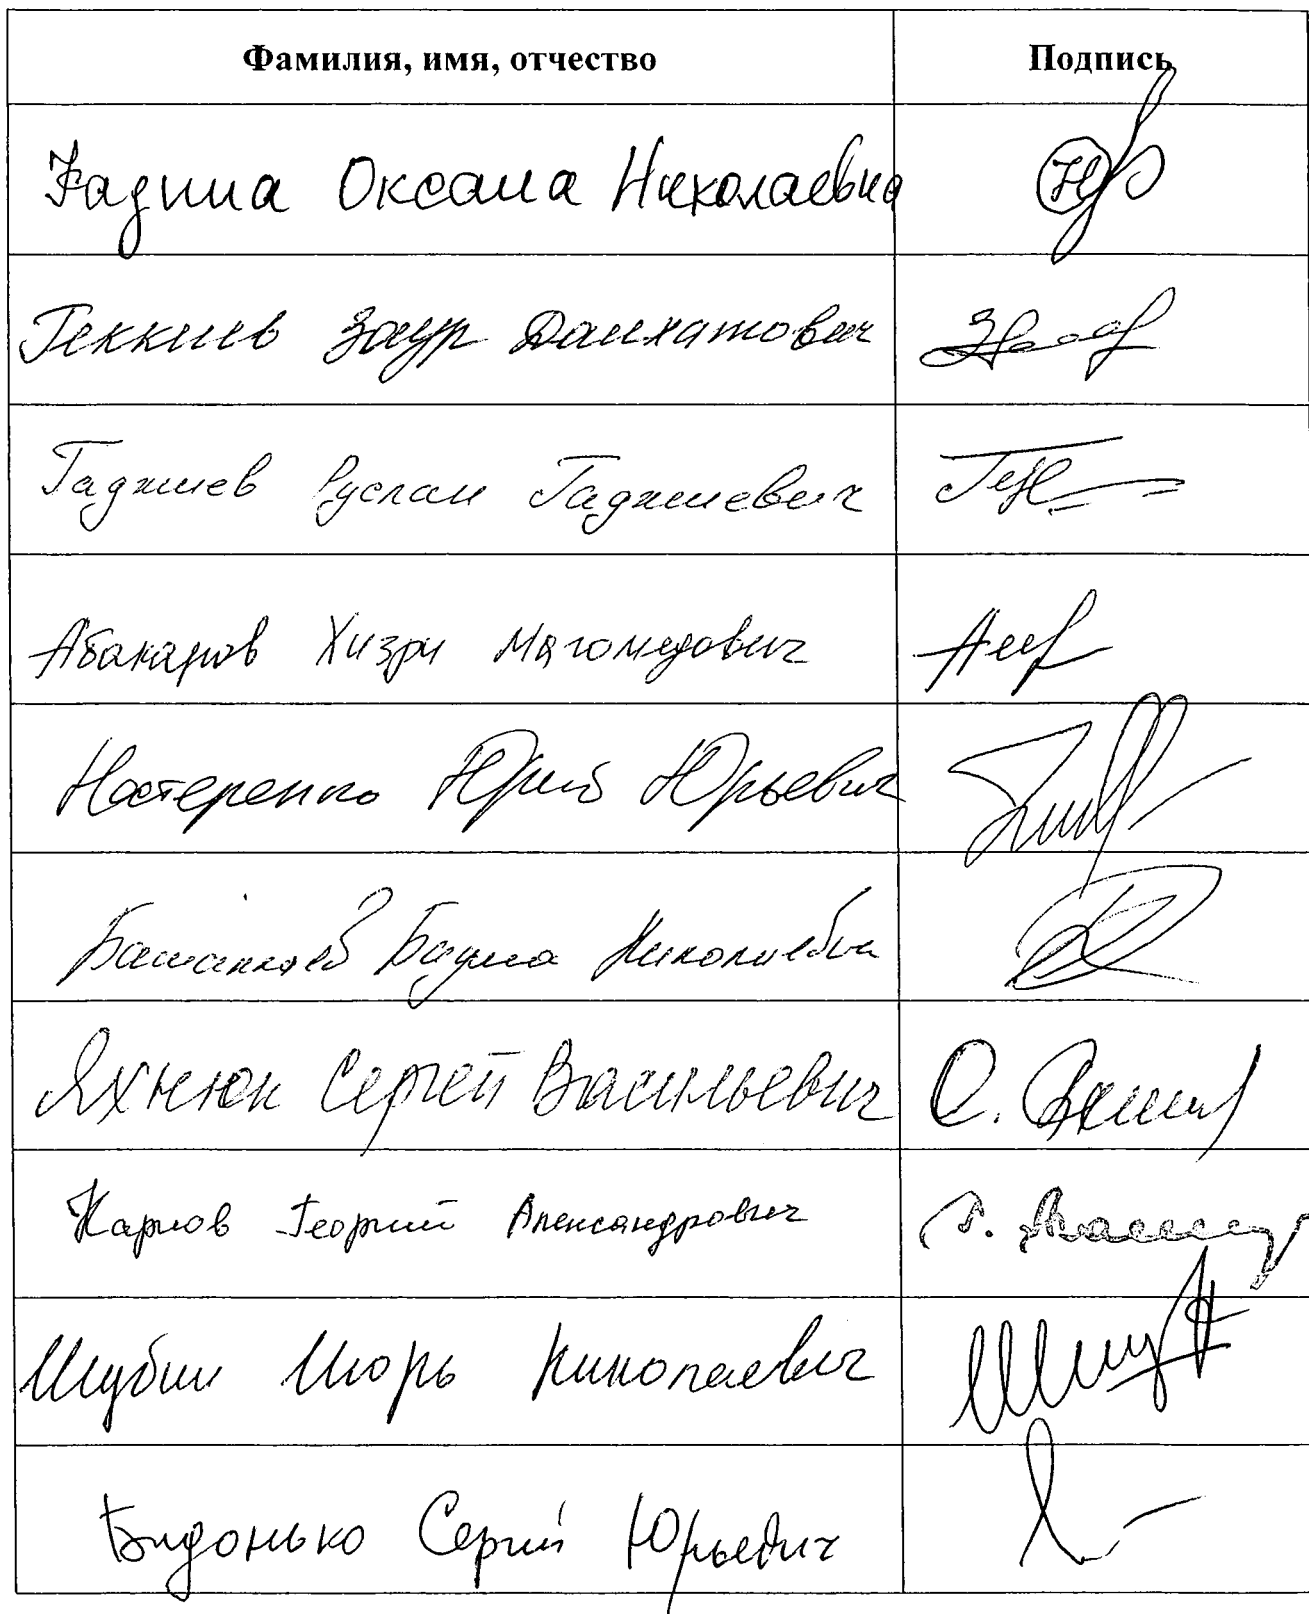 Фамилия, имя, отчество Подпись
Оксана Николаевна
Геккиев Заур Далхатович
Гаджиев Руслан Гаджиевич
Абакаров Хизри Магомедович
Нестеренко Юрий Юрьевич
Башанкаев Бадма Николаевич
Яхнюк Сергей Васильевич
Карлов Георгий Александрович
Шубин Игорь Николаевич
Бидонько Сергей Юрьевич